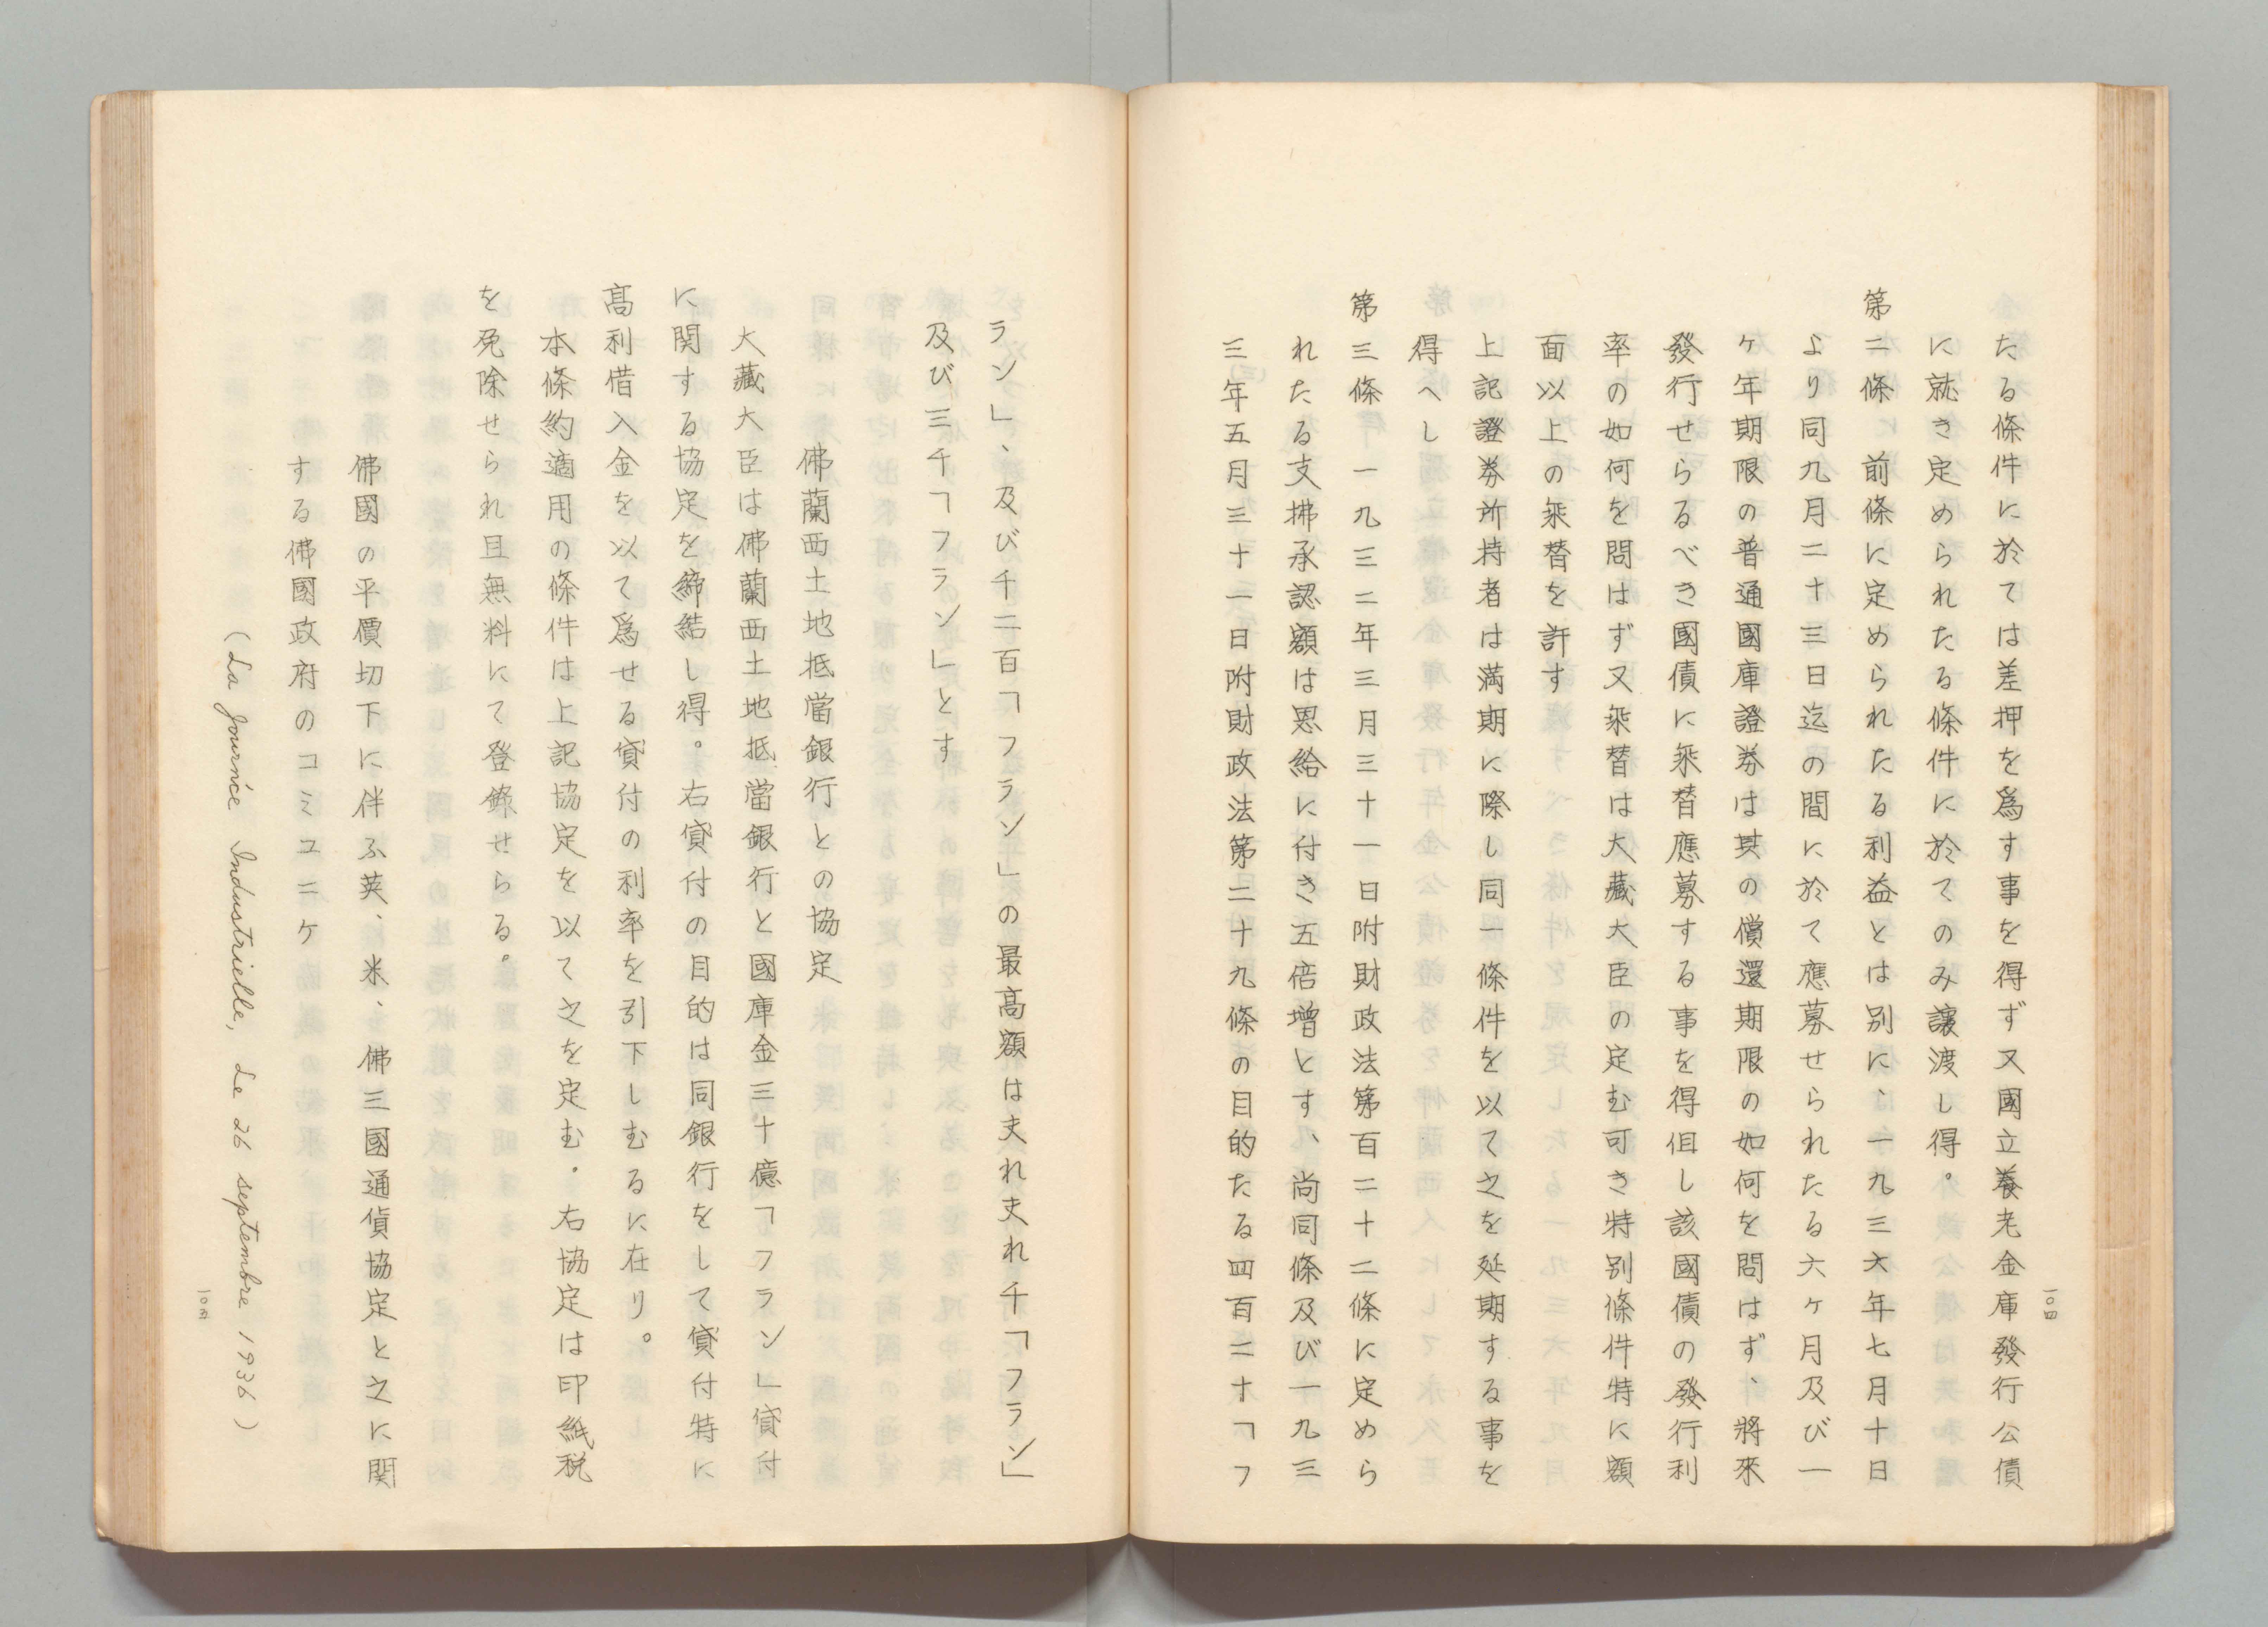 たる條件に於ては差押を爲す事を得ず又國立養老金庫發行公債
に就き定められたる條件に於てのみ讓渡し得。
第二條　前條に定められたる利益とは別に、一九三六年七月十日
より同九月二十三日迄の間に於て應募せられたる六ヶ月及び一
ヶ年期限の普通國庫證券は其の償還期限の如何を問はず、將來
發行せらるべき國債に乘替應募する事を得但し該國債の發行利
率の如何を問はず又乘替は大藏大臣の定む可き特別條件特に額
面以上の乘替を許す
上記證券所持者は滿期に際し同一條件を以て之を延期する事を
得へし
第三條　一九三二年三月三十一日附財政法第百二十二條に定めら
れたる支拂承認額は恩給に付き五倍増とす、尚同條及び一九三
三年五月三十一日附財政法第二十九條の目的たる四百二十「フ
一〇四
ラン」、及び千二百「フラン」の最高額は夫れ夫れ千「フラン」
及び三千「フラン」とす
佛蘭西土地抵當銀行との協定
大藏大臣は佛蘭西土地抵當銀行と國庫金三十億「フラン」貸付
に関する協定を締結し得。右貸付の目的は同銀行をして貸付特に
高利借入金を以て爲せる貸付の利率を引下しむるに在り。
本條約適用の條件は上記協定を以て之を定む．右協定は印紙税
を免除せられ且無料にて登錄せらる。
佛國の平價切下に伴ふ英、米、佛三國通貨協定と之に関
する佛國政府のコミユニケ
(La Journée Industrielle, Le 26 septembre 1936)
一〇五